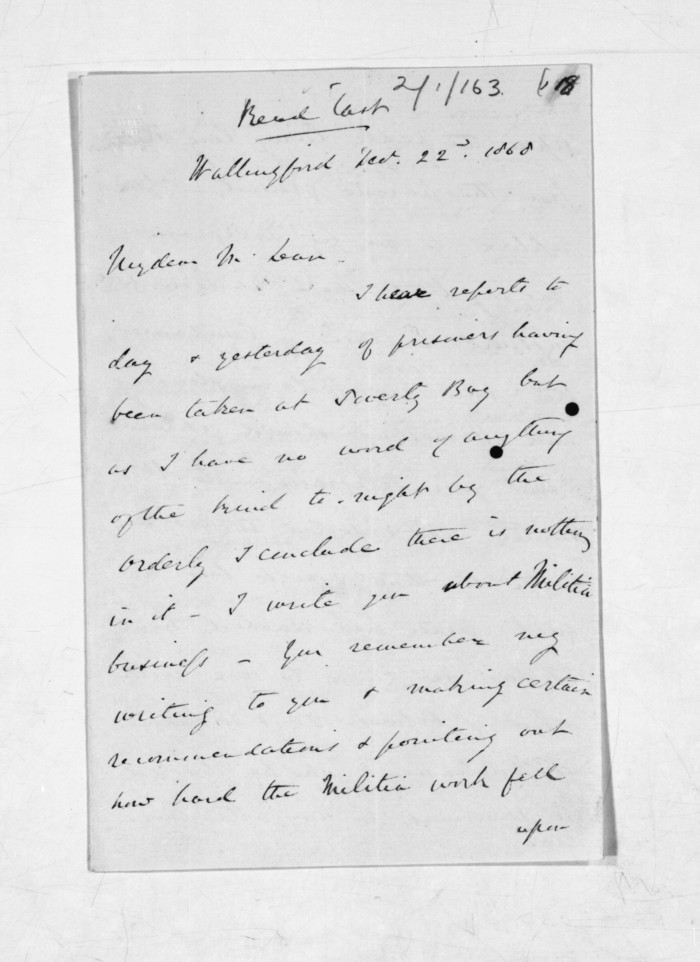 2/1/163. 18
Read Last
Wallingford Decr. 22nd. 1868
My dear Mc Lean.
I hear reports to
day & yesterday of prisoners having
been taken at Poverty Bay but
as I have no word of anything
of the kind to-night by the
orderly I conclude there is nothing
in it - I write you about Militia
business - You remember my
writing to you & making certain
recommendations & pointing out
how hard the Militia work fell
upon